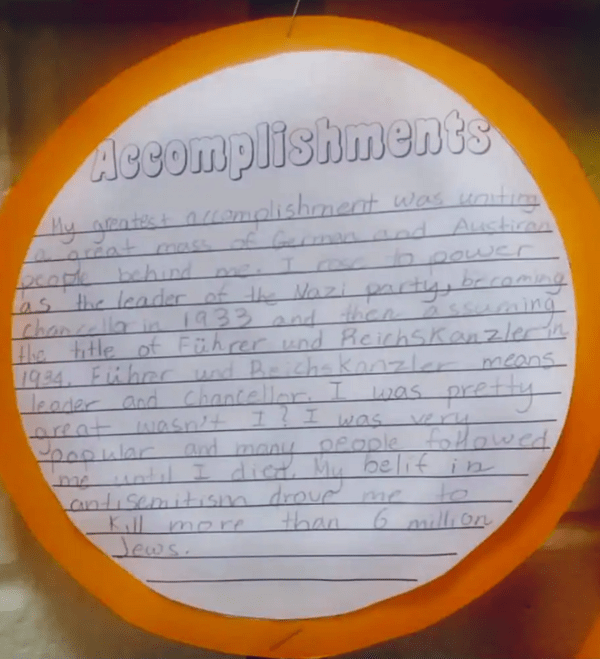 Accomplishments
My greatest accomplishment was uniting
a great mass of German and Austiran
people behind me. I rose to power
as the leader of the Nazi party, becoming
chancellor in 1933 and then assuming
the title of Führer und Reichskanzler in
1934. Führer und Reichskanzler means
leader and chancellor. I was pretty
great wasn't I? I was very
popular and many people followed
me until I died. My belif in
antisemitism drove me to
kill more than 6 million
Jews.